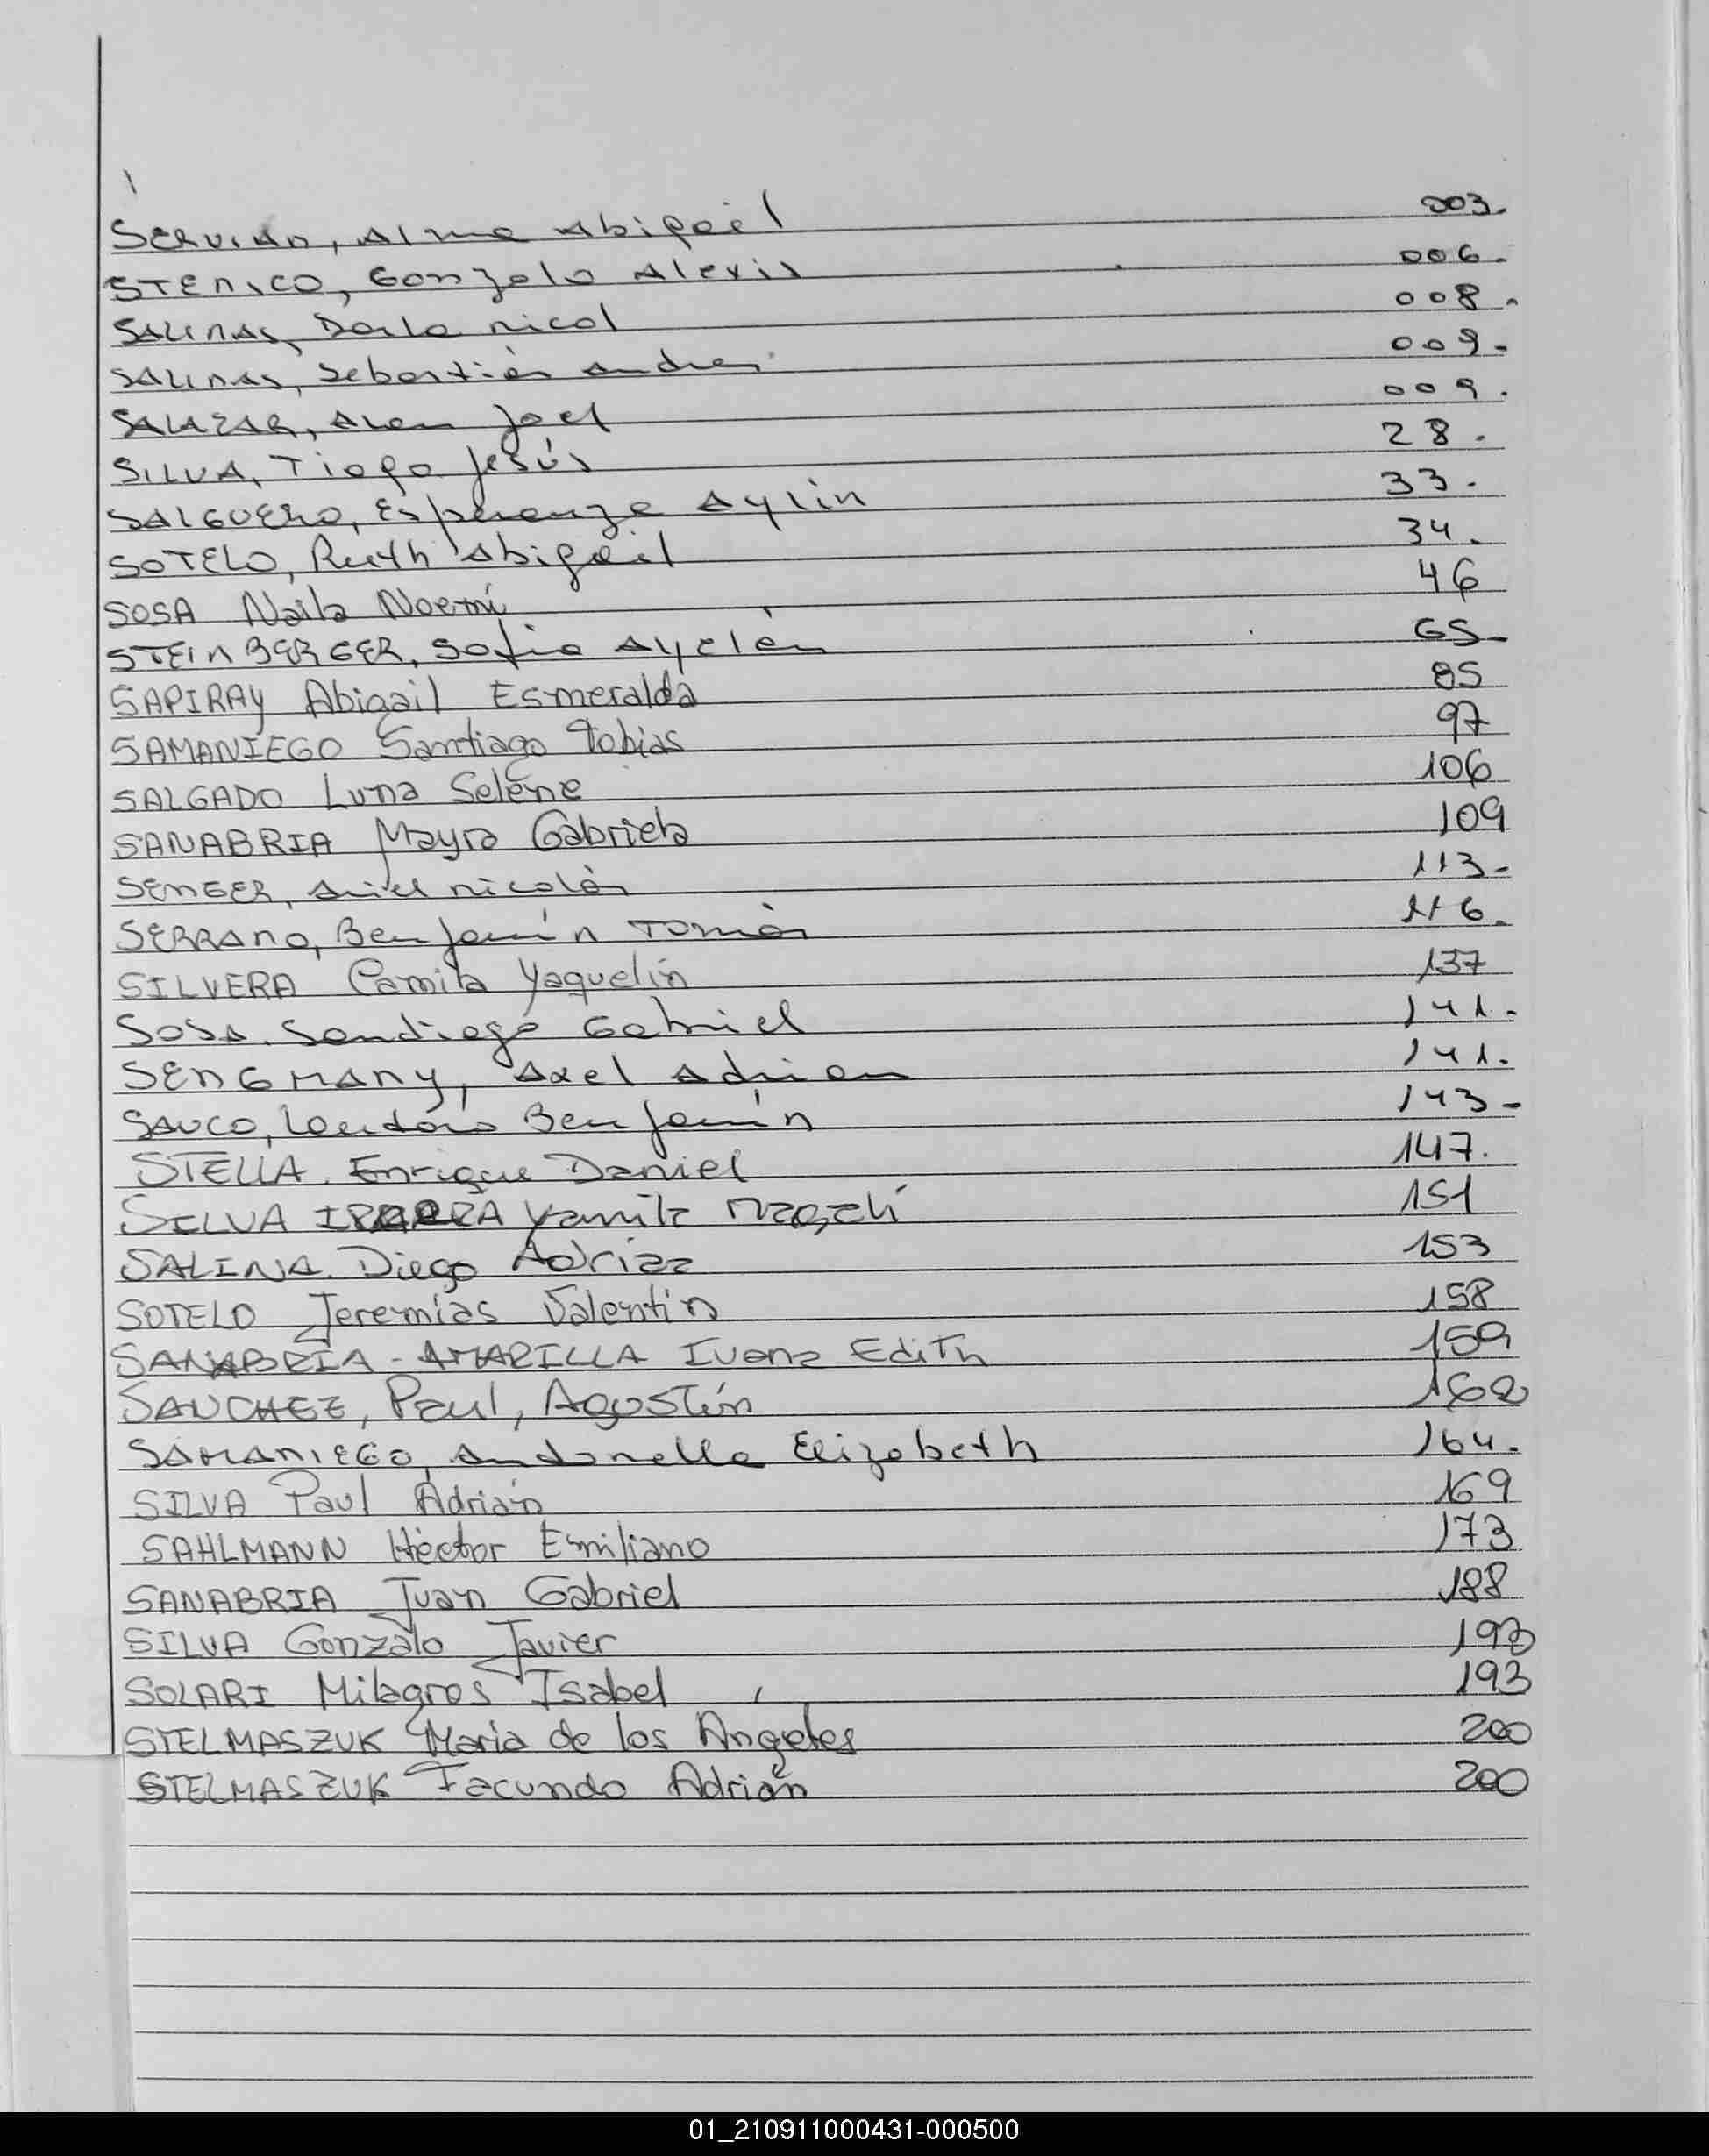 SERVIAN, Alma Abigail 003.
STENICO, Gonzalo Alexis 006.
SALINAS, Darla Nicol 008.
SALINAS, Sebastián Andres 009.
SALAZAR, Alan Joel 009.
SILVA, Tiago Jesús 28.
SALGUERO, Esperanza Aylin 33.
SOTELO, Ruth Abigail 34.
SOSA Naila Noemí 46
STEINBERGER, Sofia Ayelén 65
SAPIRAY Abigail Esmeralda 85
SAMANIEGO Santiago Tobias 97
SALGADO Luna Selene 106
SANABRIA Mayra Gabriela 109
SENGER, Ariel Nicolás 113-
SERRANO, Benjamín Tomás 116.
SILVERA Camila Yaquelin 137
SOSA. Santiago Gabriel 141.
SENGMANY, Axel Adrian 141.
SAUCO, Lautaro Benjamín 143-
STELLA. Enrique Daniel 147.
SILVA Yamila Magalí 151
SALINA. Diego 153
SOTELO Jeremías Valentin 158
SANABRIA - AMARILLA Ivana Edith 159
SANCHEZ, Paul, Agostín 162
SAMANIEGO, Antonella Elizabeth 164.
SILVA Paul Adrián 169
SAHLMANN Héctor Emiliano 173
SANABRIA Juan Gabriel 188
SILVA Gonzalo Javier 193
SOLARI Milagros Isabel 193
STELMASZUK Maria de los Angeles 200
STELMASZUK Facundo Adrián 200
01_210911000431-000500